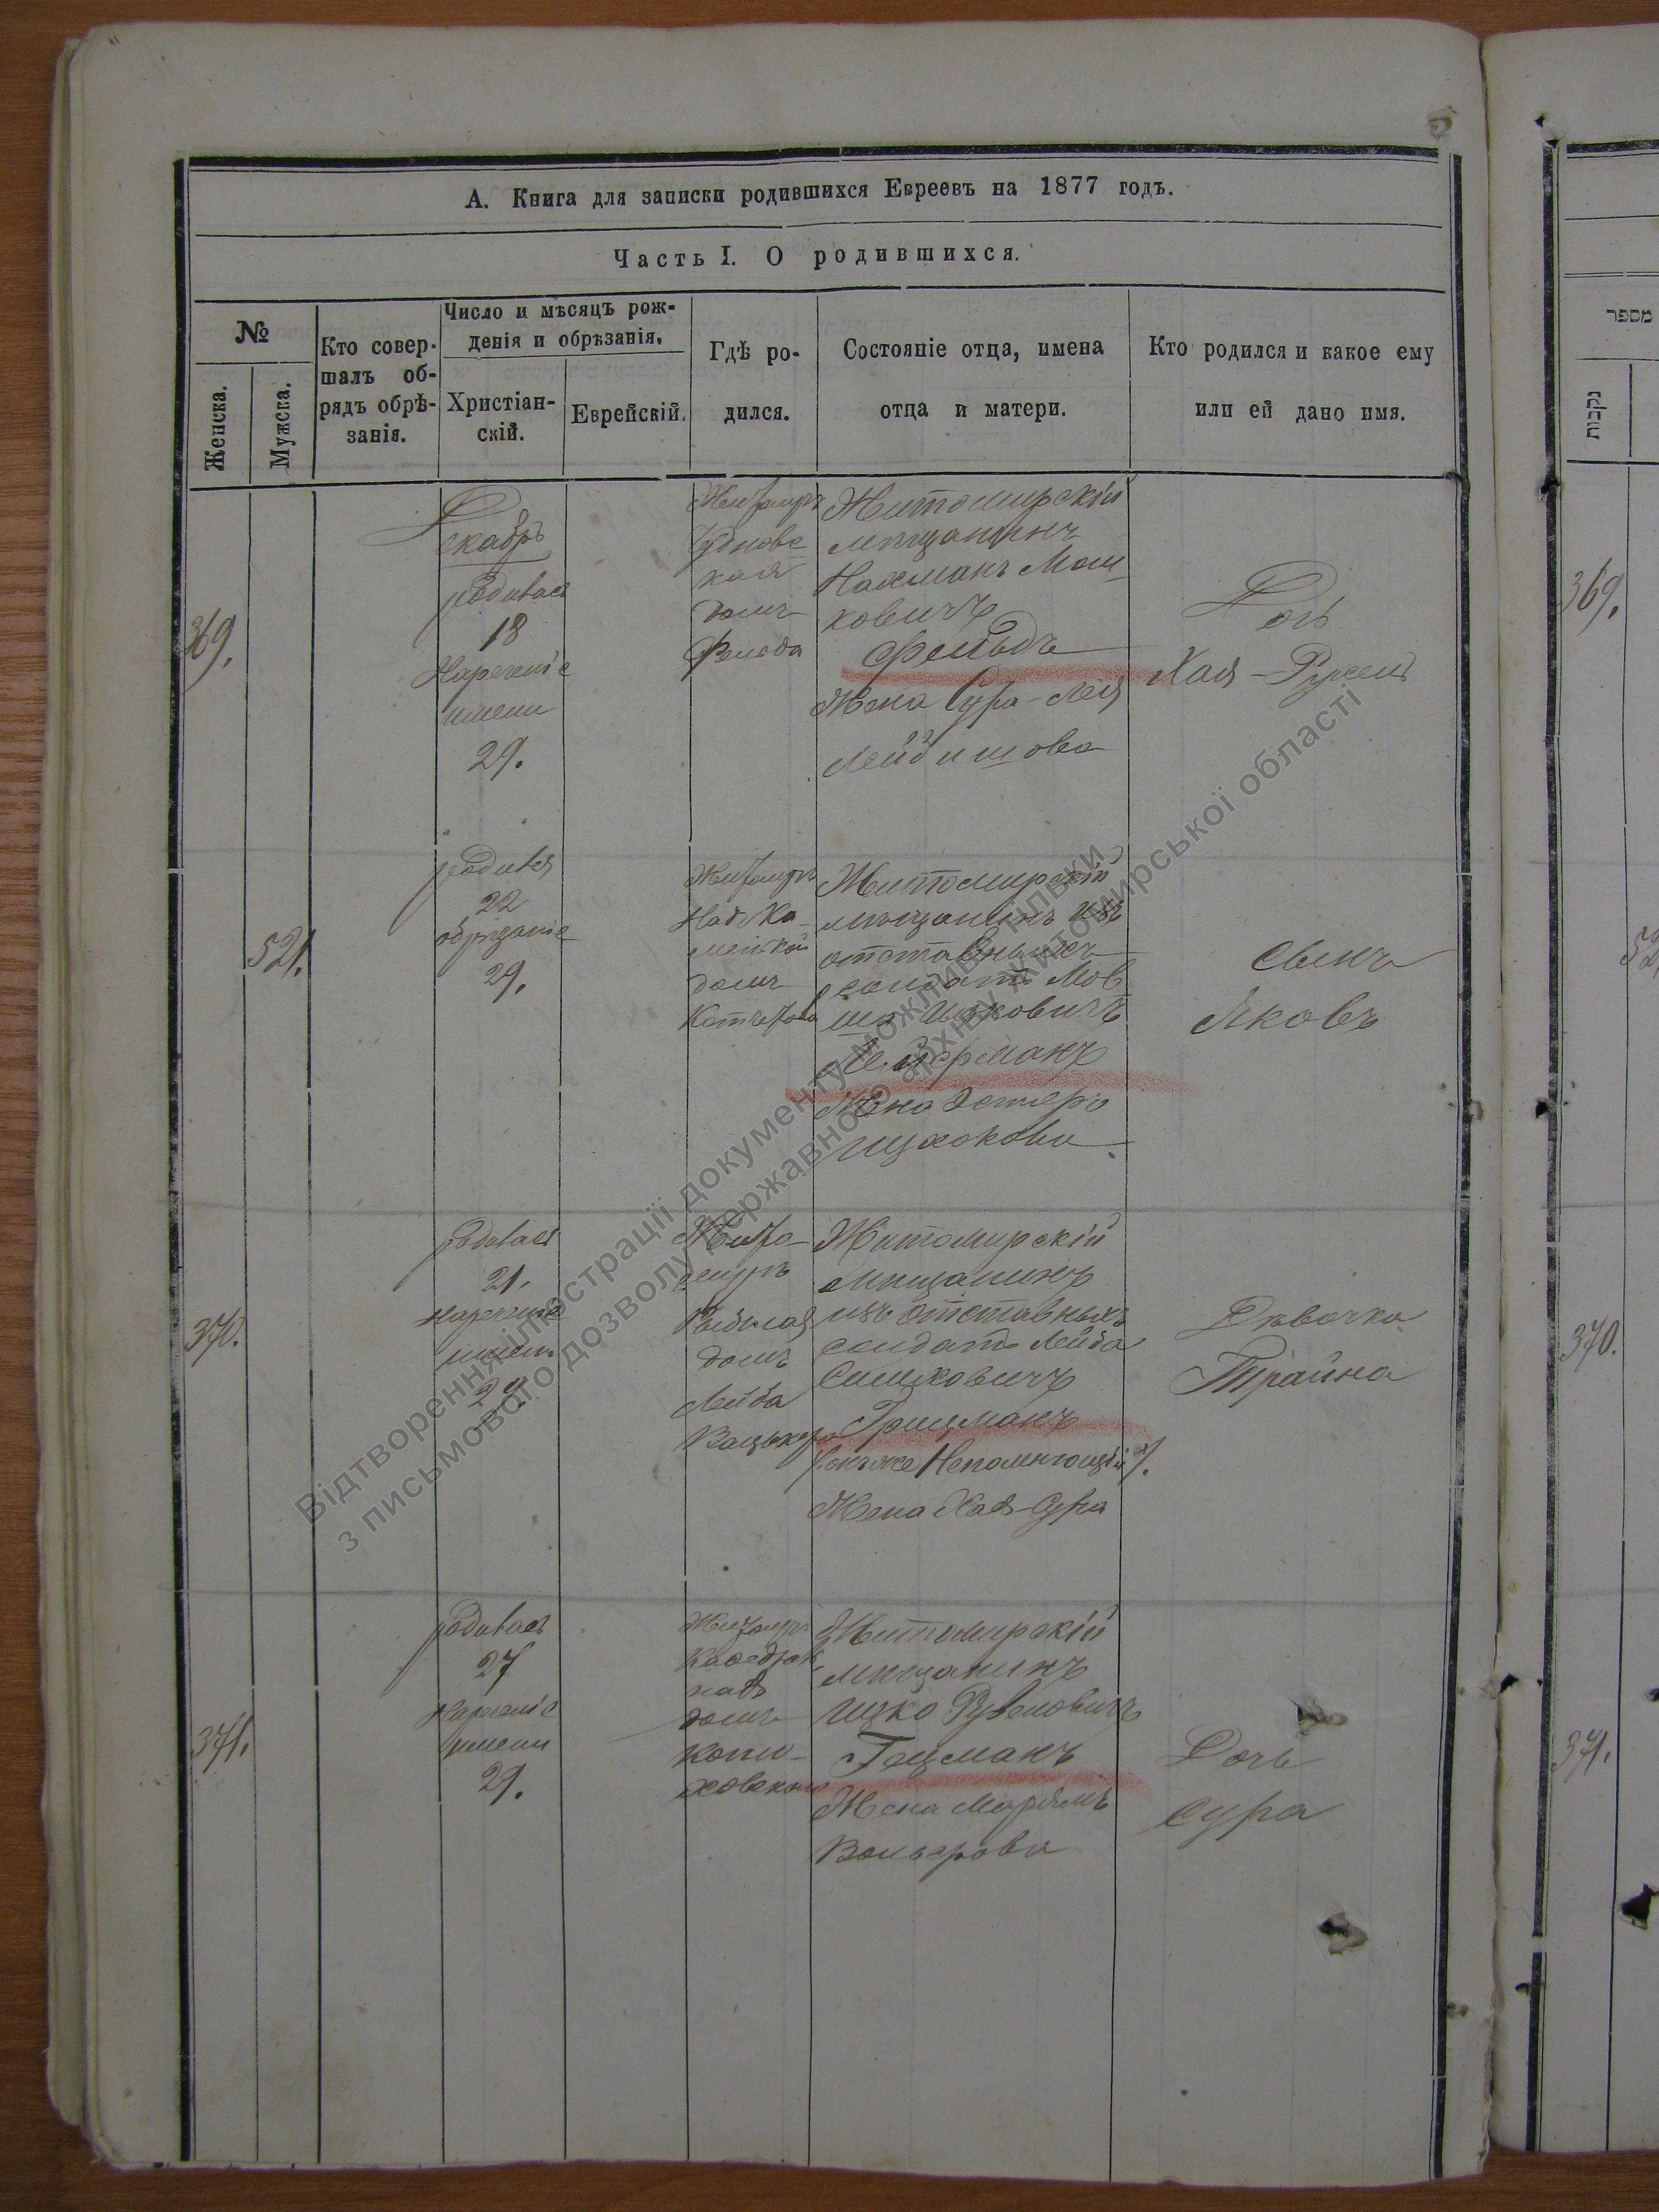 А. Книга для записки родившихся Евреевъ на 1877 годъ.
Часть I. О родившихся.
№
Женска.
Мужска.
Кто совер-
шалъ об-
рядъ обрѣ-
занія.
Число и мѣсяцъ рож-
денія и обрѣзанія.
Христіан-
скій.
Еврейскій.
Гдѣ ро-
дился.
Состояніе отца, имена
отца и матери.
Кто родился и какое ему
или ей дано имя.
369.
Декабрь
родилась
18
Нареченіе
имени
29.
Житомиръ
Чудновс-
кая
домъ
Фельда
Житомирскій
мѣщанинъ
Нахманъ Мош-
ковичъ
Фельдъ
Жена Сура-Лея
Дочь
Хая-Рухель
521.
родился
22
обрѣзаніе
29.
Житомиръ
домъ
Житомирскій
мѣщанинъ изъ
отставныхъ
солдатъ Мов
ша Ицковичъ
Жена Эстеръ
Ицхокова
Сынъ
Яковъ
370.
родилась
21.
Нареченіе
имени
29.
Жито-
миръ
Рыбная
домъ
Лейба
Житомирскій
Мѣщанинъ
изъ отставныхъ
солдатъ Лейба
Симховичъ
Грицманъ
Непомнющій
Жена Хая-Сура
Дѣвочка
Трайна
371.
родилась
27
Нареченіе
имени
29.
Житомиръ
Кафедраль
ная
домъ
Житомирскій
мѣщанинъ
Ицко Рувеловичъ
Гецманъ
Жена Марьямъ
Вольфова
Дочь
Сура
Відтворення ілюстрації документу можливе тільки
з письмового дозволу Державного архіву Житомирської області
מספר
נקבות
369.
370.
371.